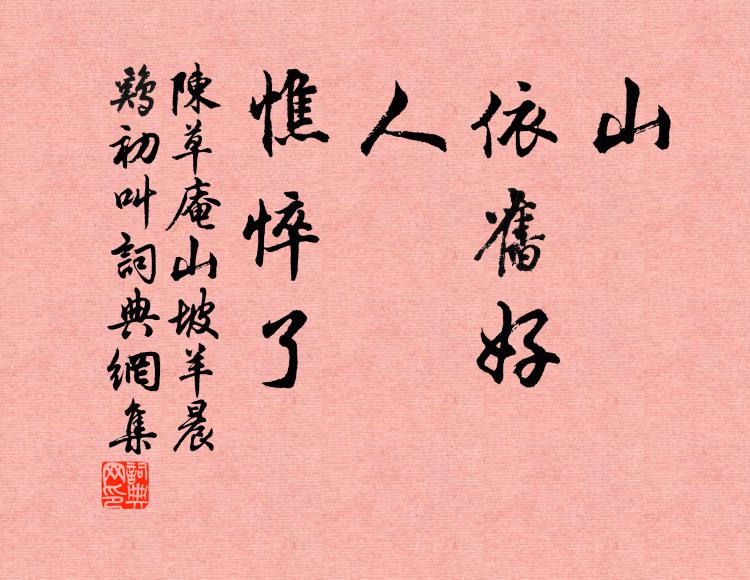 山
依舊好
人
憔悴了
陳草庵山坡羊晨
鷄初叫詞典網集
詞典
网印